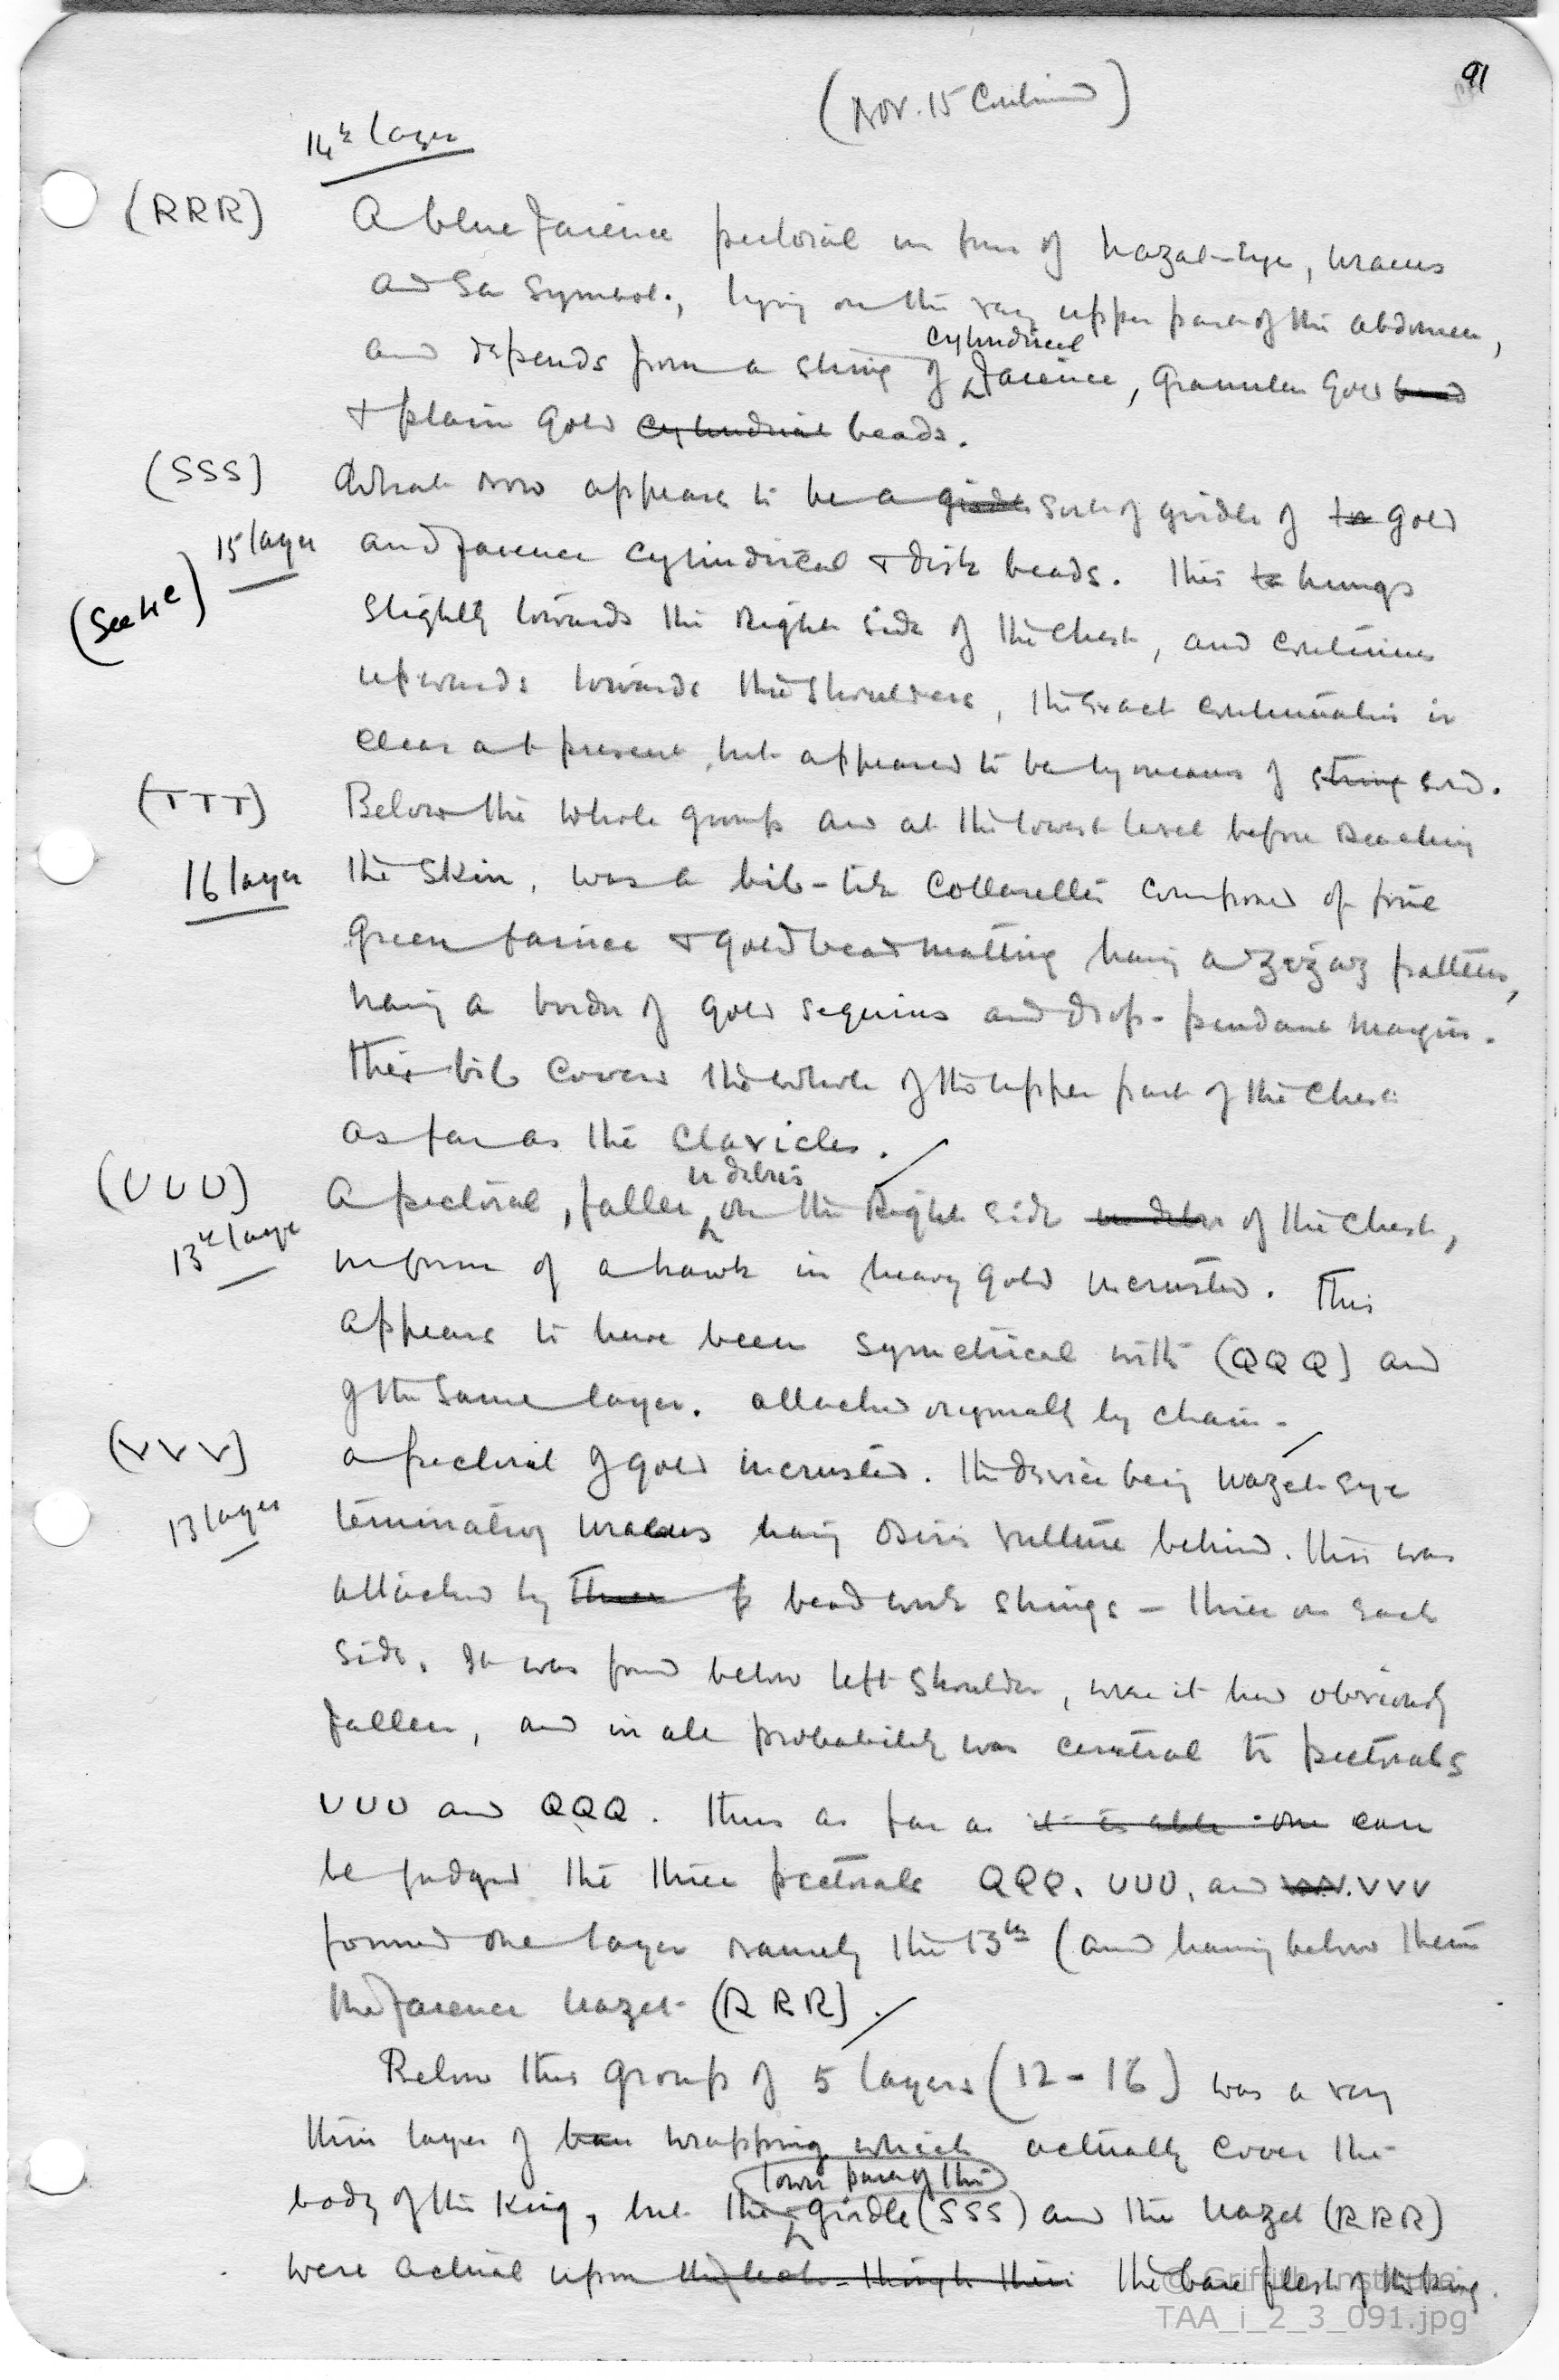 91
(Nov. 15 Continued)
14th layer
(RRR) A blue faience pectoral in form of Uazat-Eye, uraeus
and Sa Symbol, lying on the very upper part of the abdomen,
cylindrical
and depends from a string of faience, granular gold bead
+ plain gold cylindrical beads.
(SSS) What now appears to be a girdle sort of girdle of to gold
15 layer and faience cylindrical + disk beads. This to hungs
(See 4e) slightly towards the right side of the chest, and continues
upwards towards the shoulders, the exact continuation is
clear at present, but appeared to be by means of string cord.
(TTT) Below the whole group and at the lowest level before reaching
16 layer the skin, was a bib-like collarette composed of fine
green faince + gold bead matting having a zigzag pattern,
having a border of gold sequins and drop-pendant margin.
This bib covers the whole of the upper part of the chest
as far as the clavicles.
in debris
(UUU) A pectoral, fallen on the Right side in debris of the chest,
13th layer in form of a hawk in heavy gold incrusted. This
appears to have been symetrical with (QQQ) and
of the same layer. attached originally by chain-
(VVV) a pectoral of gold incrusted. The device being Uazet-eye
13 layer terminating uraeus having Osiris vulture behind. This was
attached by three p bead work strings - three on each
side. It was found below left shoulder, were it had obviously
fallen, and in all probability was central to pectorals
UUU and QQQ. Thus as far as it is able one can
be judged the three pectorals QQQ. UUU, and VVV
formed one layer namely the 13th (and having below them
the faience Uazet (RRR).
Below this group of 5 layers (12-16) was a very
thin layer of wrapping which actually cover the
lower part of the
body of the King, but the girdle (SSS) and the Uazet (RRR)
were actual upon the flesh-though thin the bare flesh of the king.
© Griffith Institute
TAA_i_2_3_091.jpg